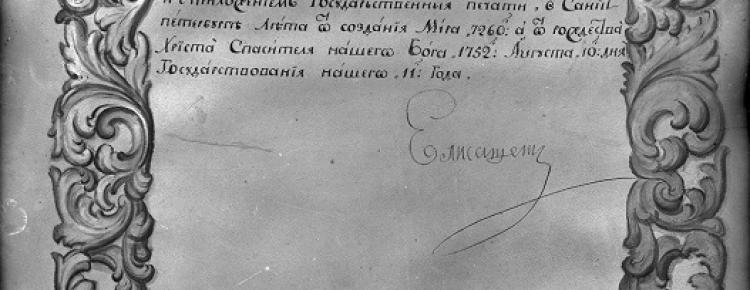 и с приложенїемъ Государственныя печати, в Санкт
петербургѣ Лѣта ѿ созданїя Мїра ҂7260: а ѿ рождества
Хрїста Спасителя нашего Бога ҂1752: Августа ҂10: дня
Государствованїя нашего ҂11: Года.
Елисаветъ